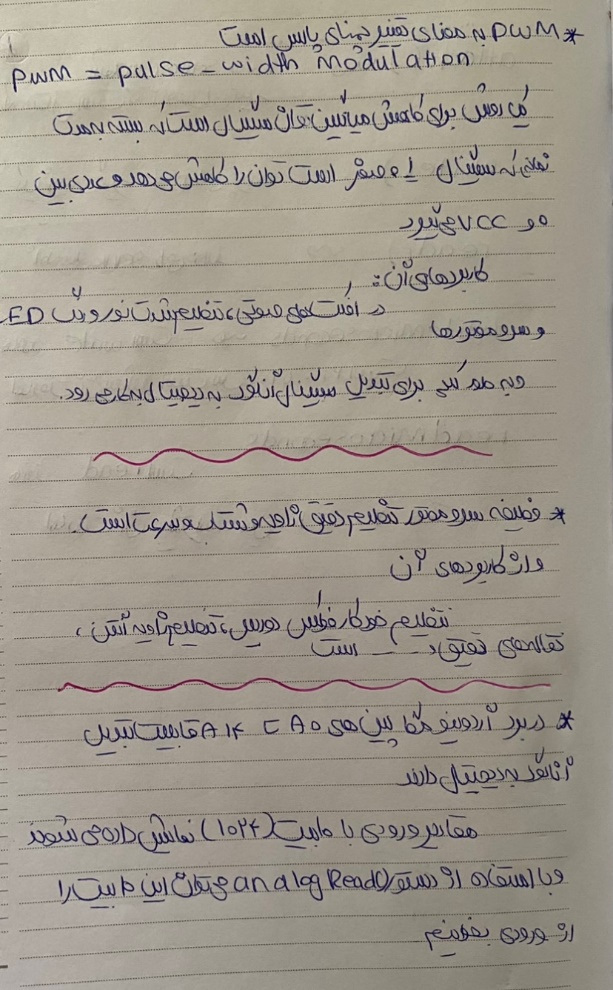 * PWM به معنای تغییر پهنای پالس است
PWM = pulse-width Modulation
یک روش برای کاهش میانگین توان سیگنال است که بسته به مدت
زمانی که سیگنال 1 یا 0 صفر است توان را کاهش می دهد و عددی بین
0 و VCC می گیرد
کاربردهای آن:
در افکت های صوتی، تنظیم شدت نور و پک LED
و سروموتورها
و به طور کلی برای تبدیل سیگنال آنالوگ به دیجیتال به کار می رود.
* وظیفه سرو موتور تنظیم دقیق زاویه و شتاب و سرعت است.
و از کاربردهای آن
تنظیم خودکار فوکس دوربین، تنظیم زاویه آنتن،
دقیق و ... است
* در برد آردوینو مگا پین های A0 تا A14 قابلیت تبدیل
آنالوگ به دیجیتال دارند
مقادیر ورودی با 10 بیت (1024) نمایش داده می شوند
و با استفاده از دستور analogRead() می توان این 10 بیت را
از ورودی بخوانیم